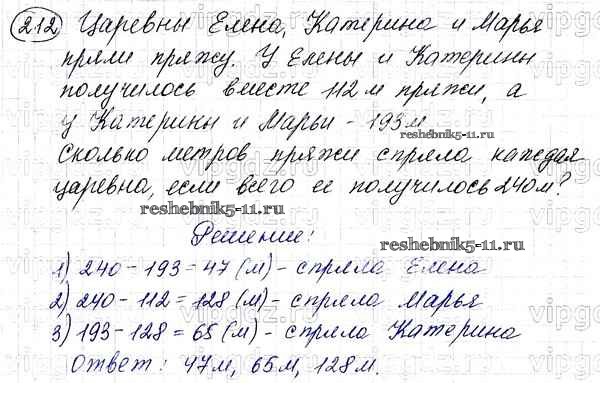 212 Царевны Елена, Катерина и Марья
пряли пряжу. У Елены и Катерины
получилось вместе 112 м пряжи, а
у Катерины и Марьи - 193 м
reshebnik5-11.ru
Сколько метров пряжи спряла каждая
царевна, если всего её получилось 240 м?
reshebnik5-11.ru
Решение:
reshebnik5-11.ru
1) 240 - 193 = 47 (м) - спряла Елена
2) 240 - 112 = 128 (м) - спряла Марья
3) 193 - 128 = 65 (м) - спряла Катерина
Ответ: 47 м, 65 м, 128 м.